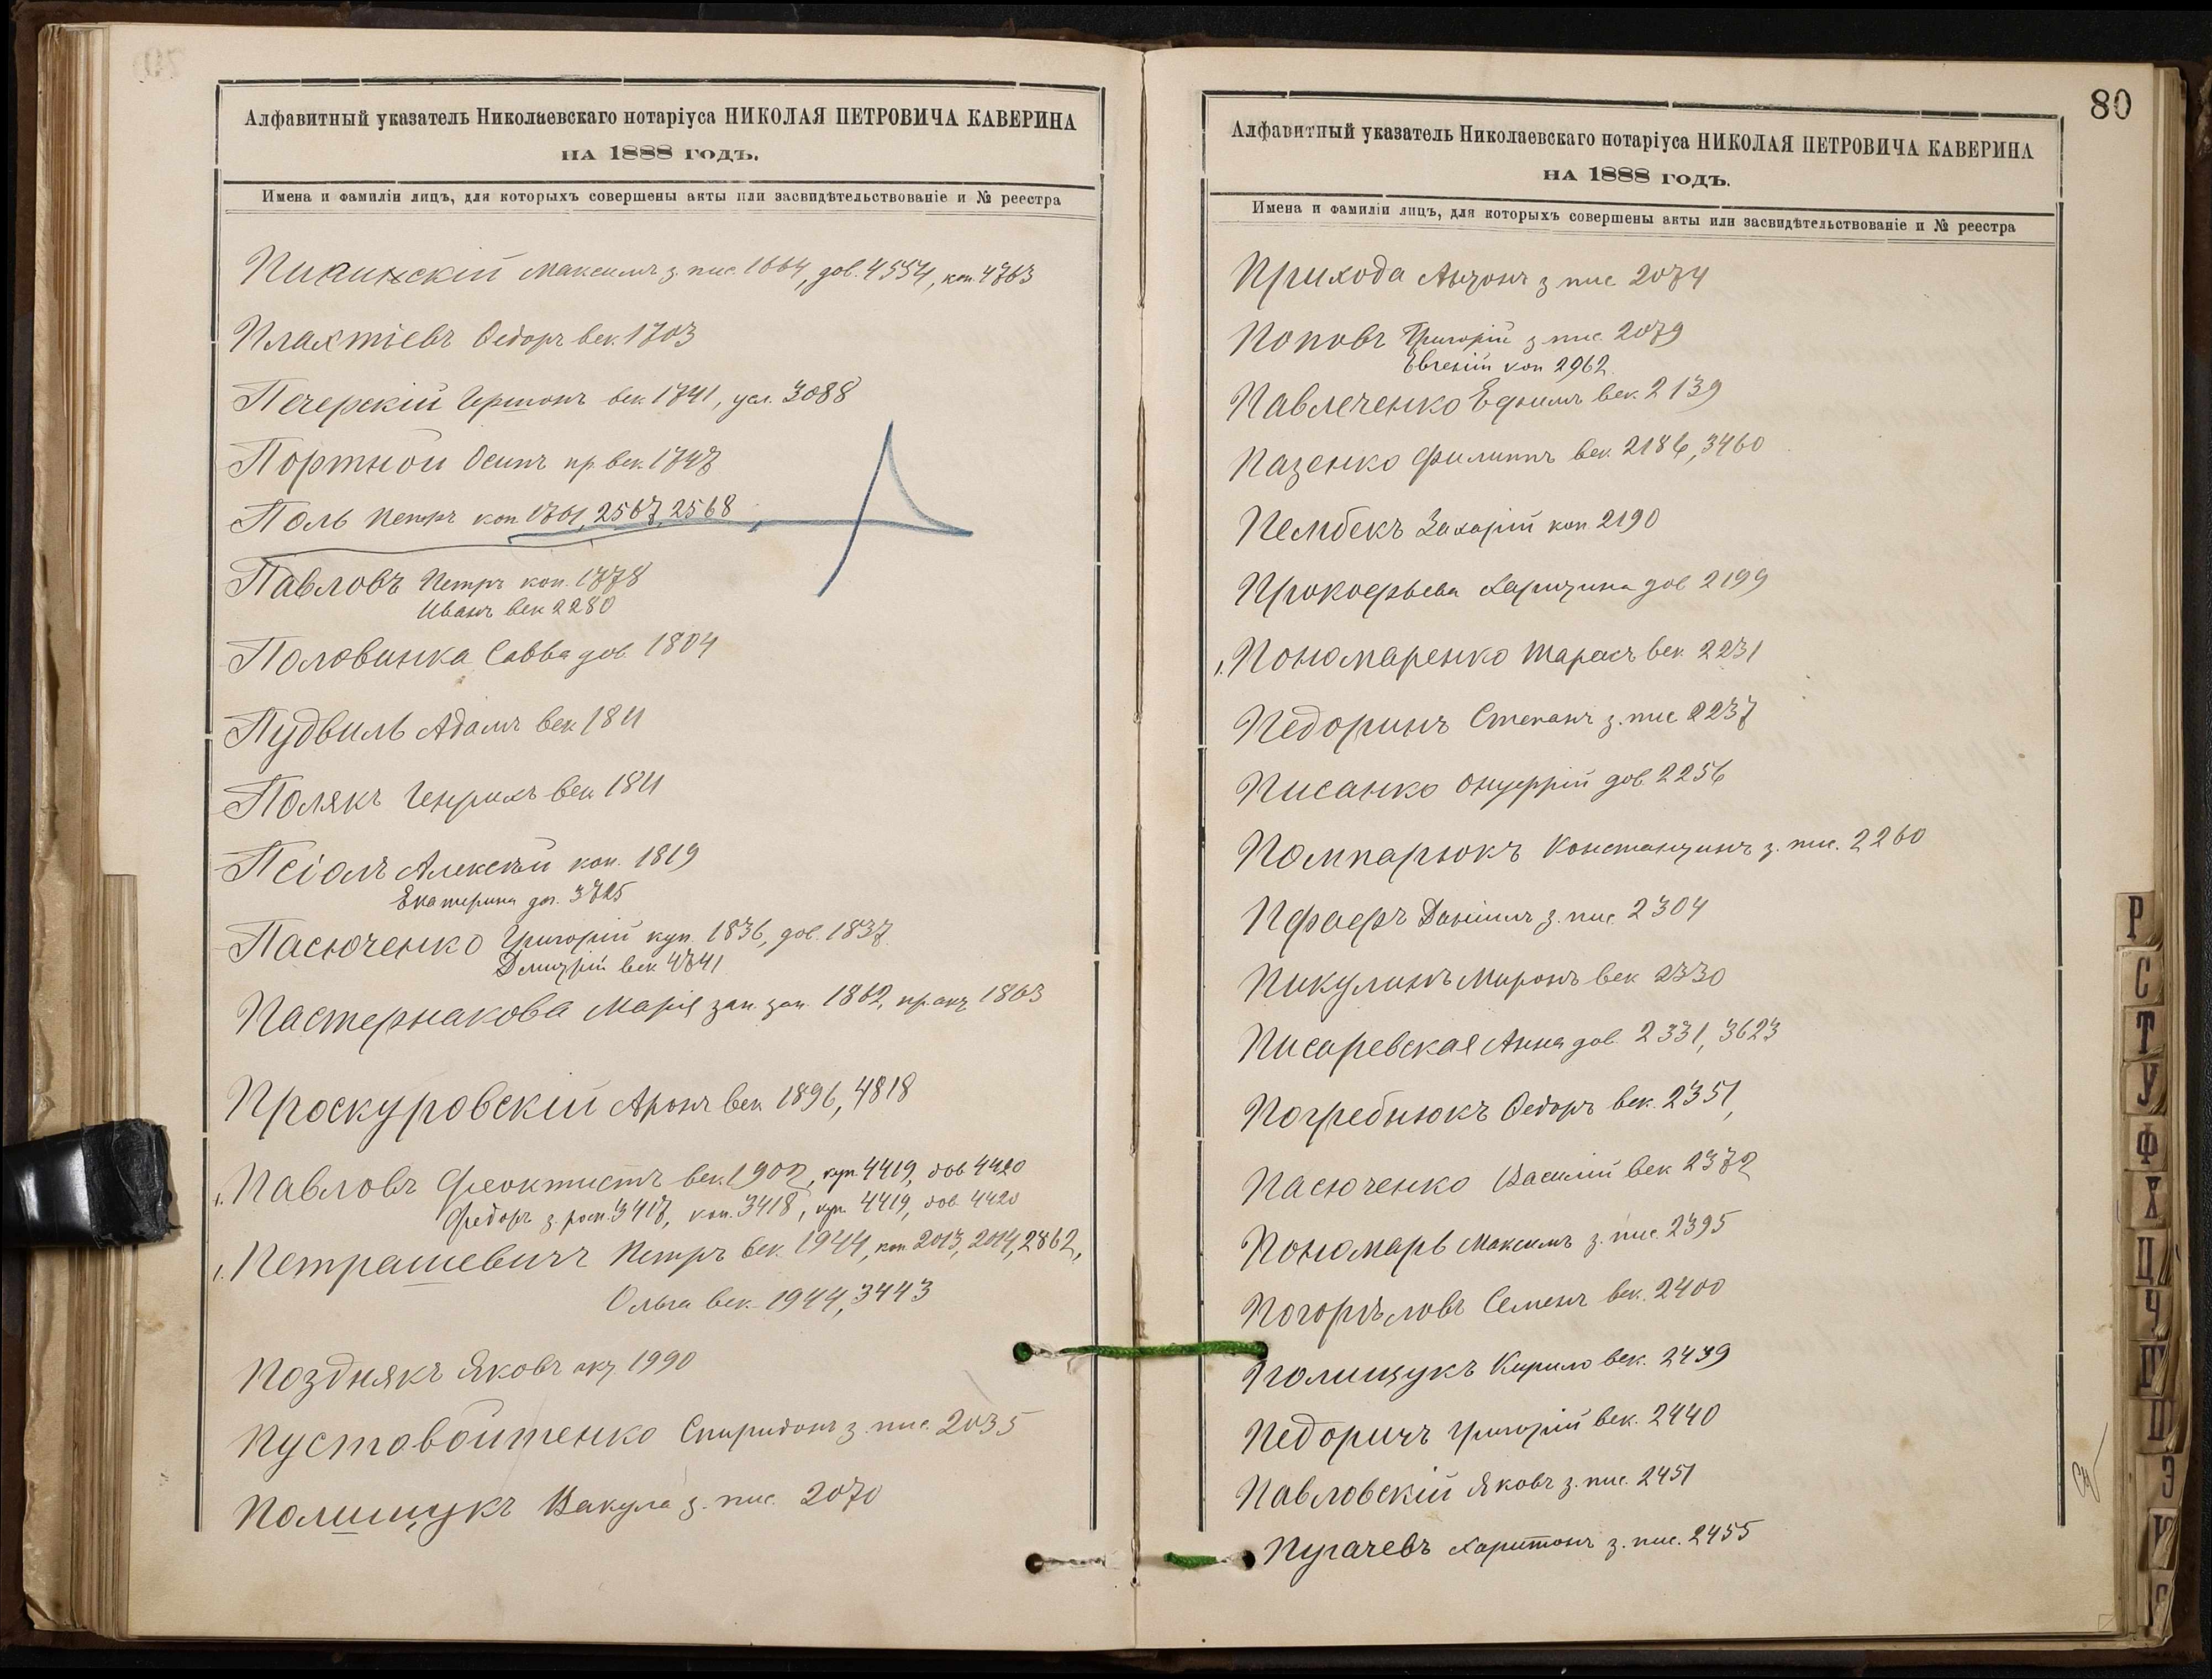 Алфавитный указатель Николаевскаго нотаріуса НИКОЛАЯ ПЕТРОВИЧА КАВЕРИНА
НА 1888 ГОДЪ.
Имена и фамиліи лицъ, для которыхъ совершены акты или засвидѣтельствованіе и № реестра
Максимъ з. пис. 1664, дов. 4554, коп. 4763
Плахтѣевъ Ѳедоръ век. 1703
Печерскій Гершонъ век. 1741, усл. 3088
Портной Осипъ пр. век. 1747
Поль Петръ коп 1761, 2567, 2568
Павловъ Петръ коп. 1778
Иванъ век 2280
Половинка Савва дов. 1804
Пудвиль Адамъ век 1811
Полякъ Генрихъ век 1811
Псіолъ Алексѣй коп. 1819
Екатерина дог. 3725
Пасюченко Григорій куп. 1836, дов. 1837
Дмитрій век 4741
Пастернакова Марія зап. зап. 1862, пр. акт 1863
Проскуровскій Аронъ век 1896, 4818
1. Павловъ Феоктистъ век. 1902, куп. 4419, дов 4420
Федоръ з. росп. 3417, коп. 3418, куп 4419, дов. 4420
1. Петрашевичъ Петръ век. 1944, коп 2013, 2014, 2862,
Ольга век. 1944, 3443
Позднякъ Яковъ акт. 1990
Пустовойтенко Спиридонъ з. пис. 2035
Полищукъ Вакула з. пис. 2070
80
Алфавитный указатель Николаевскаго нотаріуса НИКОЛАЯ ПЕТРОВИЧА КАВЕРИНА
НА 1888 ГОДЪ.
Имена и фамиліи лицъ, для которыхъ совершены акты или засвидѣтельствованіе и № реестра
Приходa Антонъ з пис 2074
Поповъ Григорій з пис. 2079
Евгений коп 2962
Павлеченко Ефимъ век. 2139
Пазенко Филиппъ век. 2186, 3460
Пембекъ Захарій коп 2190
Прокофьева Харитина дов 2199
1. Пономаренко Тарасъ век. 2231
Педоринъ Степанъ з. пис 2237
Писанко Онуфрій дов. 2256
Помпарюкъ Константинъ з. пис. 2260
Пфафъ Даніилъ з. пис. 2304
Пикулинъ Миронъ век 2330
Писаревская Анна дов. 2331, 3623
Погребнюкъ Ѳедоръ век. 2351,
Пасюченко Василій век 2372
Пономарь Максимъ з. пис. 2395
Погорѣловъ Семенъ век. 2400
Полищукъ Кирило век. 2439
Педоричъ Григорій век. 2440
Павловскій Яковъ з. пис. 2451
Пугачевъ Харитонъ з. пис. 2455
Р
С
Т
У
Ф
Х
Ц
Ч
Ш
Щ
Э